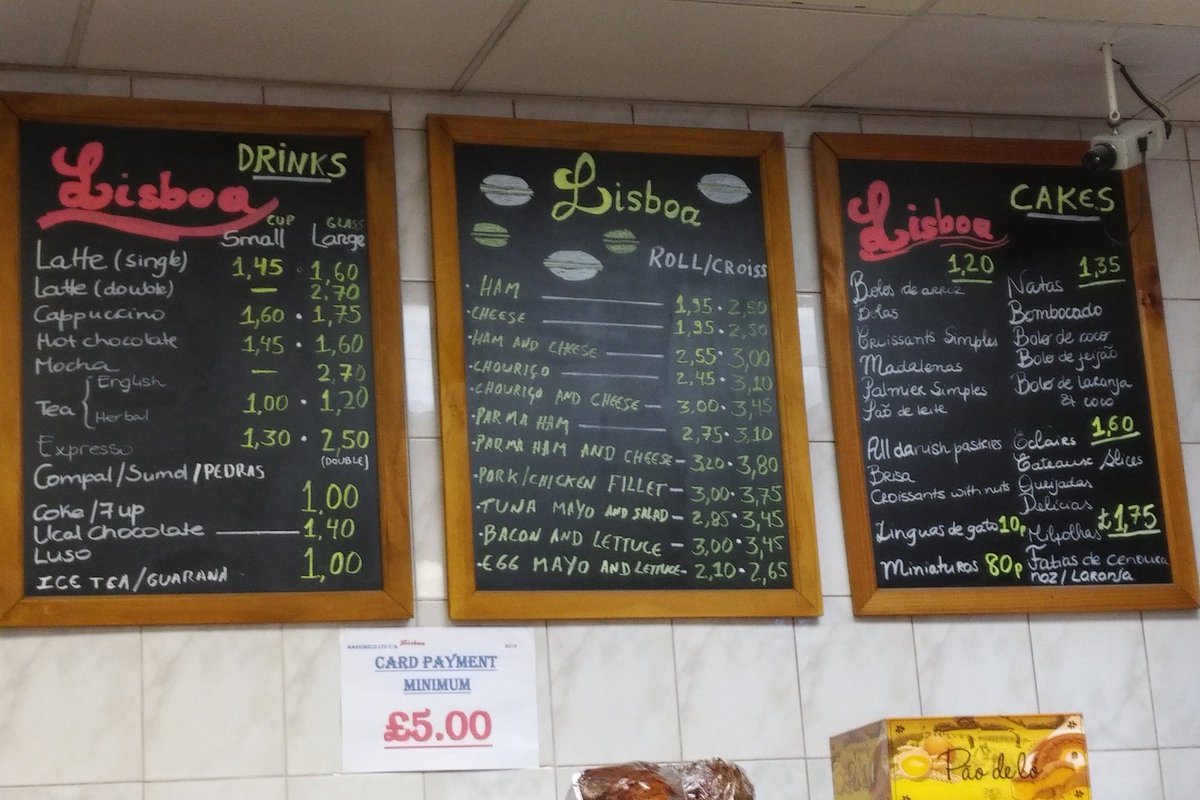 Lisboa
DRINKS
CUP GLASS
Small Large
Latte (single) 1,45 · 1,60
Latte (double) — 2.70
Cappuccino 1,60 · 1,75
Hot chocolate 1,45 · 1,60
Mocha — 2,70
Tea { English
Herbal 1,00 · 1,20
Expresso 1,30 · 2,50
(DOUBLE)
Compal/Sumol/PEDRAS
Coke/7up 1.00
Ucal Chocolate 1,40
Luso
ICE TEA/GUARANÁ 1,00
Lisboa
ROLL/CROISS
· HAM 1,95 · 2,50
· CHEESE 1,95 · 2,50
· HAM AND CHEESE 2,55 · 3,00
· CHOURIÇO 2,45 · 3,10
· CHOURIÇO AND CHEESE — 3,00 · 3,45
· PARMA HAM 2,75 · 3,10
· PARMA HAM AND CHEESE — 3,20 · 3,80
· PORK/CHICKEN FILLET — 3,00 · 3,75
· TUNA MAYO AND SALAD — 2,85 · 3,45
· BACON AND LETTUCE — 3,00 · 3,45
· EGG MAYO AND LETTUCE — 2,10 · 2,65
Lisboa
CAKES
1,20
Bolos de arroz
Bolas
Croissants Simples
Madalenas
Palmier Simples
Pão de leite
All danish pastries
Brisa
Croissants with nuts
Linguas de gato 10p
Miniaturas 80p
1,35
Natas
Bombocado
Bolo de coco
Bolo de feijão
Bolo de laranja
& coco
1,60
Eclaires
Gateaux Slices
Queijadas
Delicias
£1,75
Milfolhas
Fatias de cenoura
noz/Laranja
CARD PAYMENT
MINIMUM
£5.00
Pão de ló